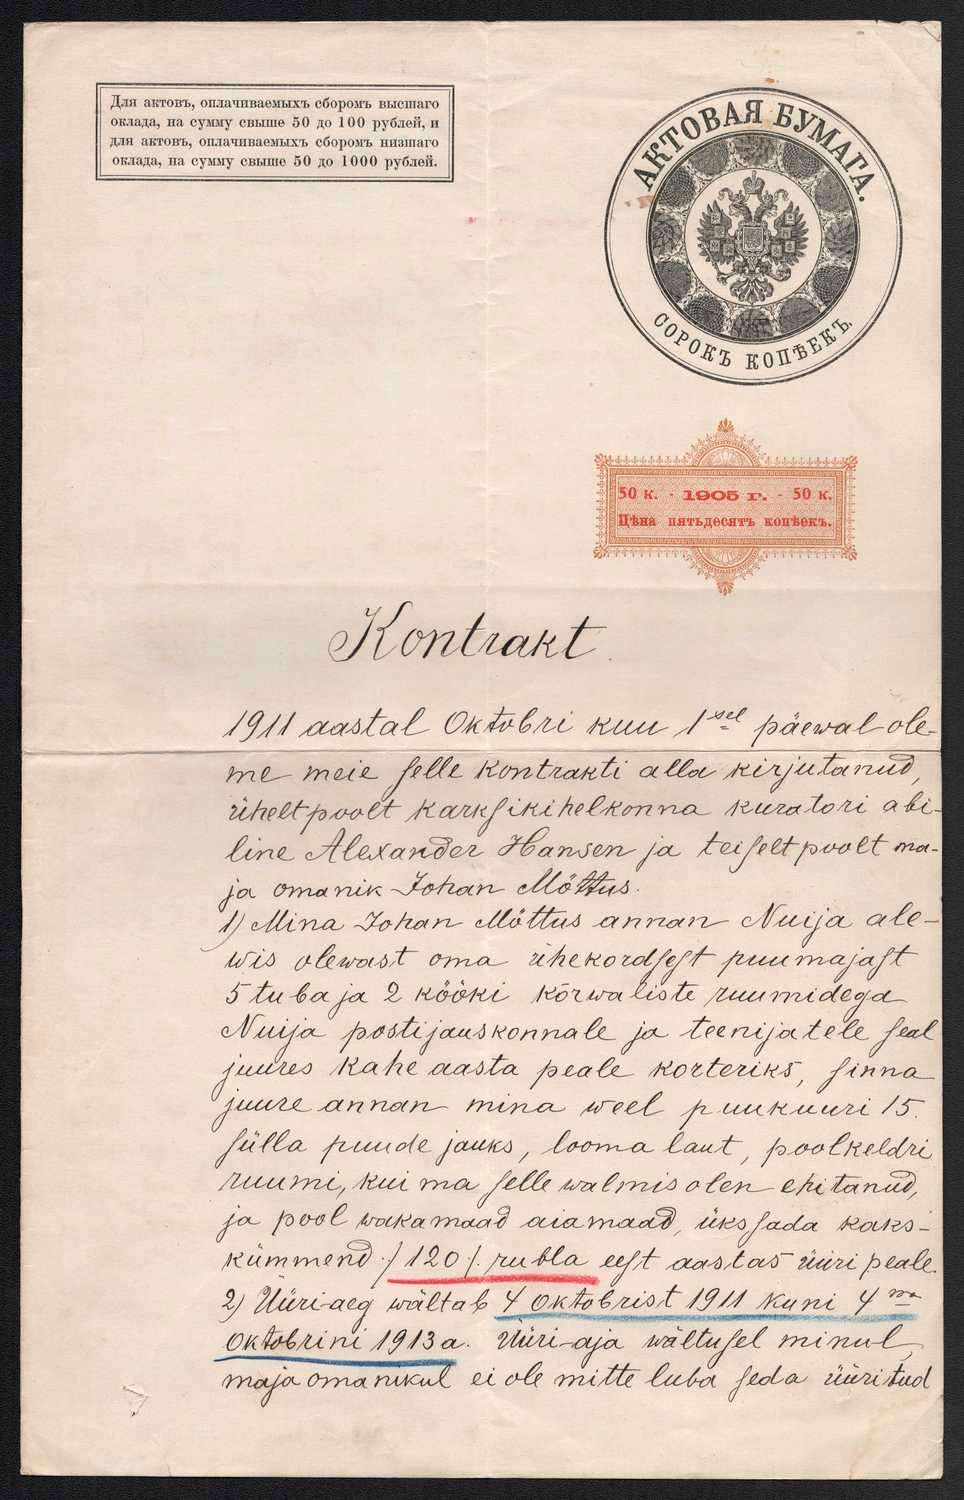 Для актовъ, оплачиваемыхъ сборомъ высшаго
оклада, на сумму свыше 50 до 100 рублей, и
для актовъ, оплачиваемыхъ сборомъ низшаго
оклада, на сумму свыше 50 до 1000 рублей.
АКТОВАЯ БУМАГА.
СОРОКЪ КОПѢЕКЪ.
50 к. · 1905 г. · 50 к.
Цѣна пятьдесятъ копѣекъ.
Kontrakt
1911 aastal Oktobri kuu 1sel päewal ole-
me meie selle kontrakti alla kirjutanud,
üheltpoolt Karksi kihelkonna kuratori abi-
line Alexander Hansen ja teiseltpoolt ma-
ja omanik Johan Möttus.
1) Mina Johan Möttus annan Nuija ale-
wis olewast oma ühekordsest puumajast
5 tuba ja 2 kööki kõrwaliste ruumidega
Nuija postijauskonnale ja teenijatele seal
juures kahe aasta peale korteriks, sinna
juure annan mina weel puukuuri 15.
sülla puude jauks, looma laut, poolkeldri
ruumi, kui ma selle walmis olen ehitanud,
ja pool wakamaad aiamaad, ükssada kaks-
kümmend ·/ 120 /. rubla eest aastas üüri peale.
2) Üüri-aeg wältab 4 Oktobrist 1911 kuni 4ma
Oktobrini 1913 a. Üüri-aja wältusel minul,
maja omanikul ei ole mitte luba seda üüritud